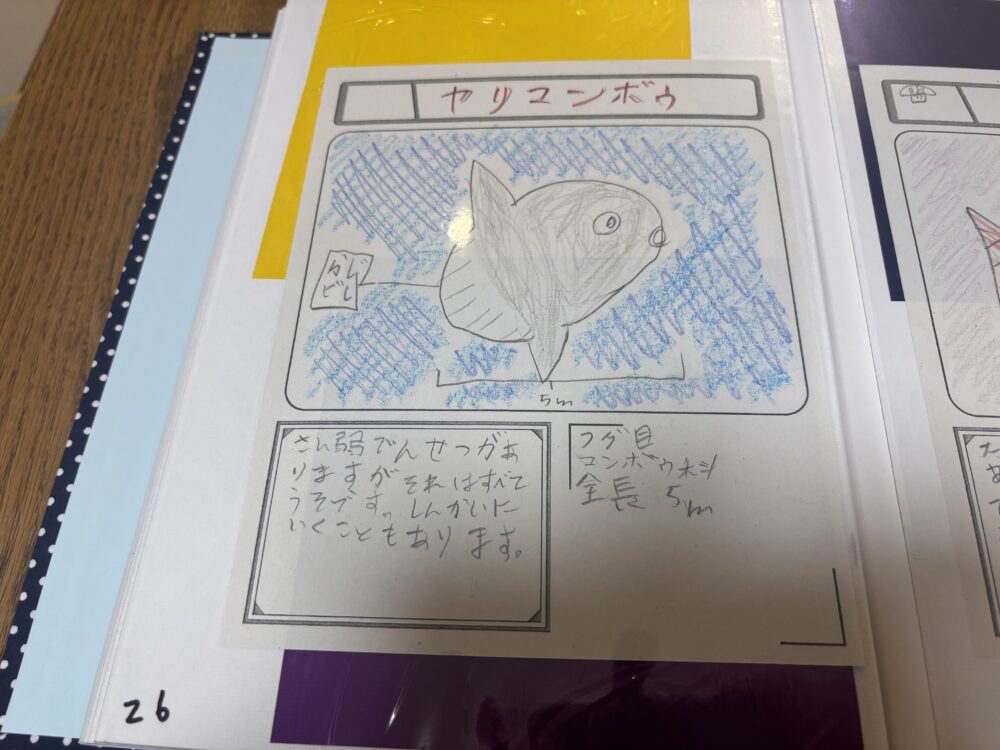 ヤリマンボウ
かじ
ビレ
5m
さい弱でんせつがあ
りますが それはすべて
うそです。しんかいに
いくこともあります。
フグ目
マンボウ科
全長 5m
26